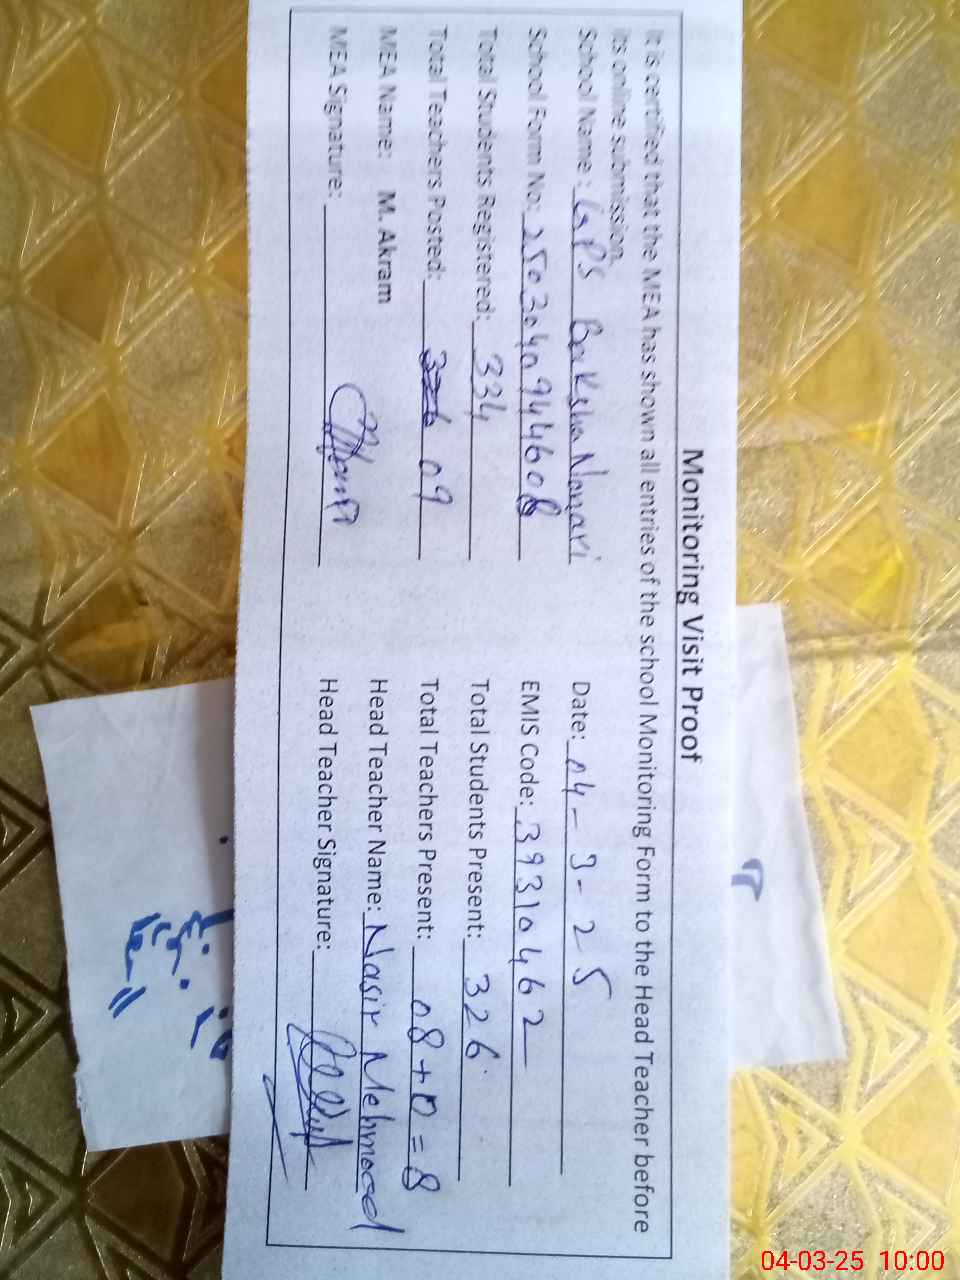 Monitoring Visit Proof
It is certified that the MEA has shown all entries of the school Monitoring Form to the Head Teacher before
its online submission.
School Name: GPS Baksha Nonari Date: 04-3-25
School Form No: 2503040944608 EMIS Code: 39310462
Total Students Registered: 334 Total Students Present: 326
Total Teachers Posted: 09 Total Teachers Present: 08+0=8
MEA Name: M. Akram Head Teacher Name: Nasir Mehmood
MEA Signature: Head Teacher Signature:
04-03-25 10:00